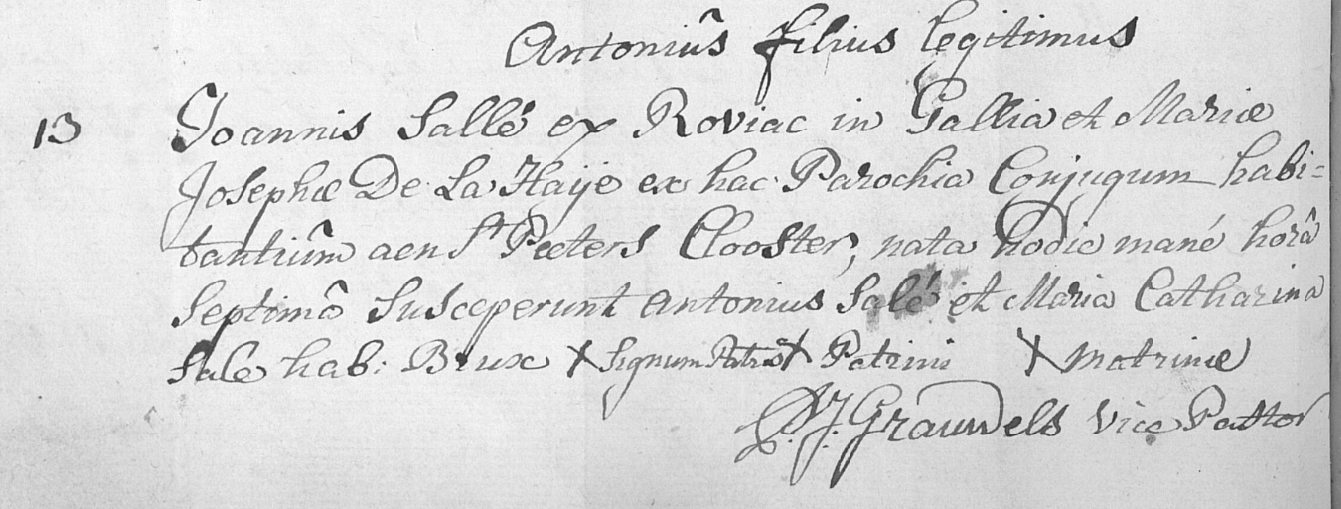 Antoniũs filius legitimus
13 Joannis Sallé ex Roviac in Gallia et Mariæ
Josephæ De La Haije ex hac Parochia Conjugum habi=
tantiũm aen St Peeters Clooster, nata hodie mané horâ
Septimâ Susceperunt Antonius Salé et Maria Catharina
Sale hab: Brux X Signum Patris X Patrini X Matrinæ
J. Graundels Vice Pastor